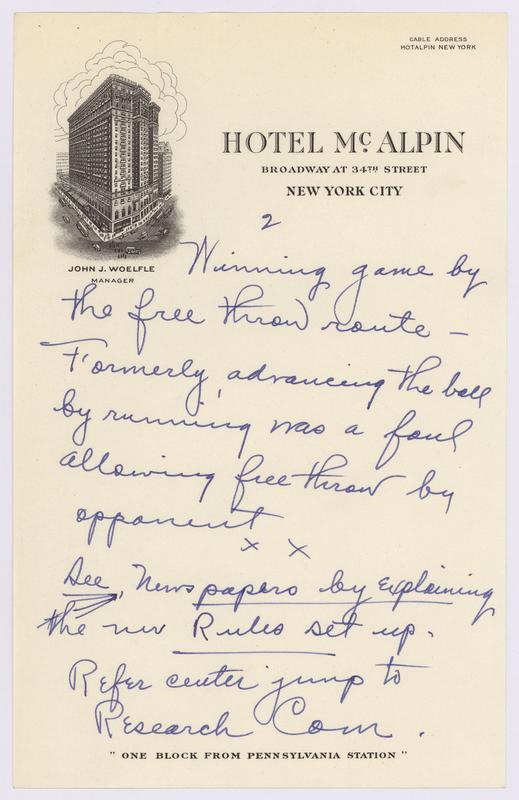 CABLE ADDRESS
HOTALPIN NEW YORK
HOTEL McALPIN
BROADWAY AT 34TH STREET
NEW YORK CITY
JOHN J. WOELFLE
MANAGER
2
Winning game by
the free throw route –
Formerly, advancing the ball
by running was a foul
allowing free throw by
opponent
x x
See, Newspapers by explaining
the new Rules set up.
Refer center jump to
Research Com.
" ONE BLOCK FROM PENNSYLVANIA STATION "